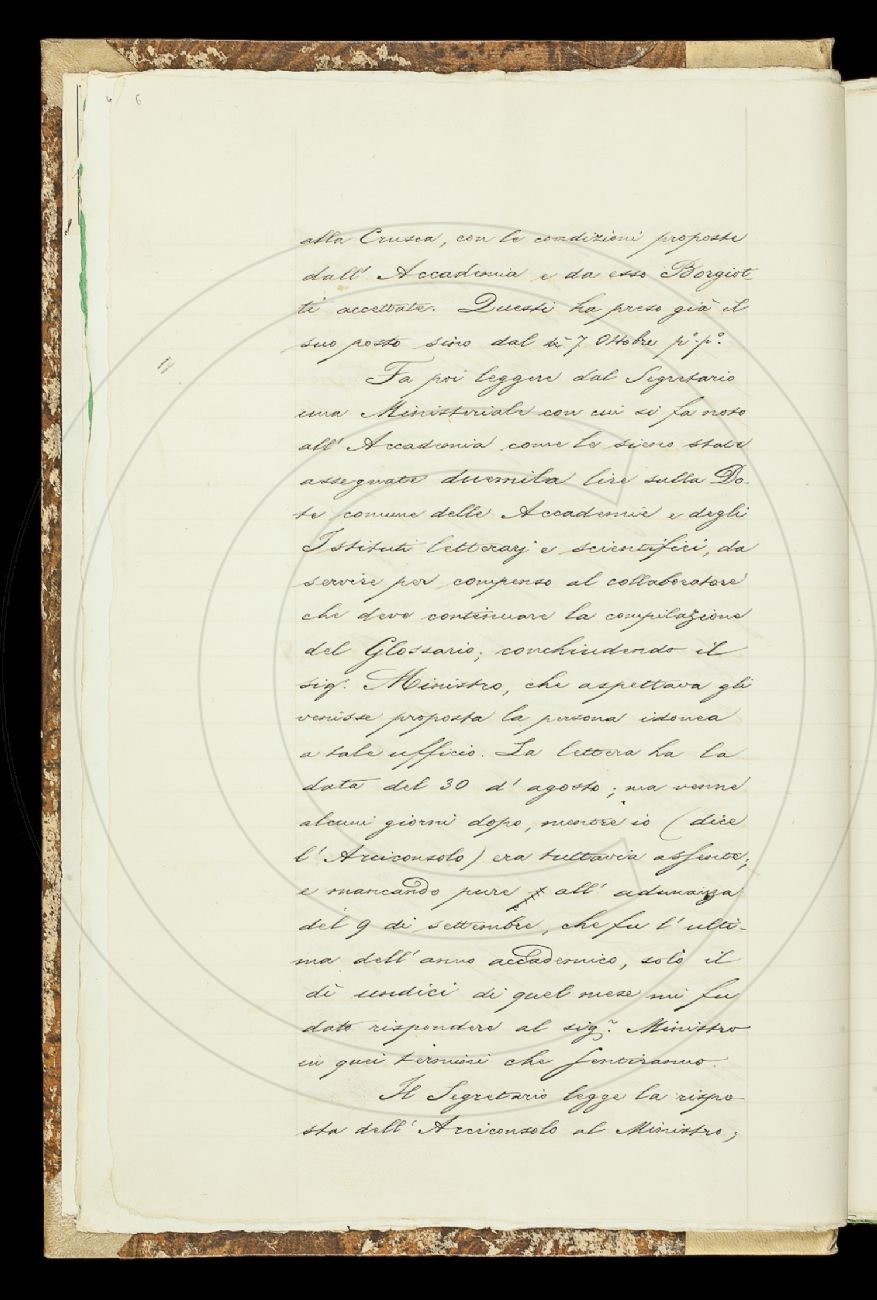 6
alla Crusca, con le condizioni proposte
dall' Accademia e da esso Borgiot-
ti accettate. Questi ha preso già il
suo posto sino dal dì 7 Ottobre p.º p.º
Fa poi leggere dal Segretario
una Ministeriale con cui si fa noto
all' Accademia come le sieno state
assegnate duemila lire sulla Do-
te comune delle Accademie e degli
Istituti letterarj e scientifici, da
servire per compenso al collaboratore
che deve continuare la compilazione
del Glossario; conchiudendo il
sig.r Ministro, che aspettava gli
venisse proposta la persona idonea
a tale ufficio. La lettera ha la
data del 30 d' agosto; ma venne
alcuni giorni dopo, mentre io (dice
l' Arciconsolo) era tuttavia assente;
e mancando pure all' adunanza
del 9 di settembre, che fu l' ulti-
ma dell' anno accademico, solo il
dì undici di quel mese mi fu
dato rispondere al sig.r Ministro
in quei termini che sentiranno.
Il Segretario legge la rispo-
sta dell' Arciconsolo al Ministro;